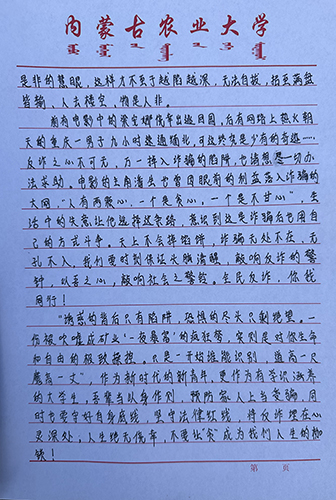 内蒙古农业大学
是非的慧眼，这样才不至于越陷越深，无法自拔，招至满盘
皆输，人去楼空，物是人非。
前有电影中的安定娜侥幸出逃回国，后有网络上热火朝
天的重庆一男子九小时逃遁缅北，可这终究是少有的奇迹……
反诈之心不可无，万一掉入诈骗的陷阱，也请想尽一切办
法求助，电影的主角潘生也曾因眼前的利益落入诈骗的
大网，“人有两颗心，一个是贪心，一个是不甘心”，生
活中的失意让他选择这条路，意识到这是诈骗后也用自
己的方式斗争。天上不会掉馅饼，诈骗无处不在，无
孔不入，我们要时刻保证头脑清醒，敲响反诈的警
钟，以吾之心，敲响社会之警铃。全民反诈，你我
同行！
“诱惑的背后只有陷阱，恐惧的尽头只剩绝望。一
伤被吹嘘成矿业‘一夜暴富’的疯狂梦，实则是对你生命
和自由的极致操控。只是一开始谁能识别，道高一尺
魔高一丈”，作为新时代的新青年，更作为有学识涵养
的大学生，吾辈当以身作则，预防家人上当受骗，同
时也要守好自身底线，坚守法律红线，将反诈埋在心
灵深处，人生绝无侥幸，不要让“贪”成为我们人生的枷
锁！
第 页